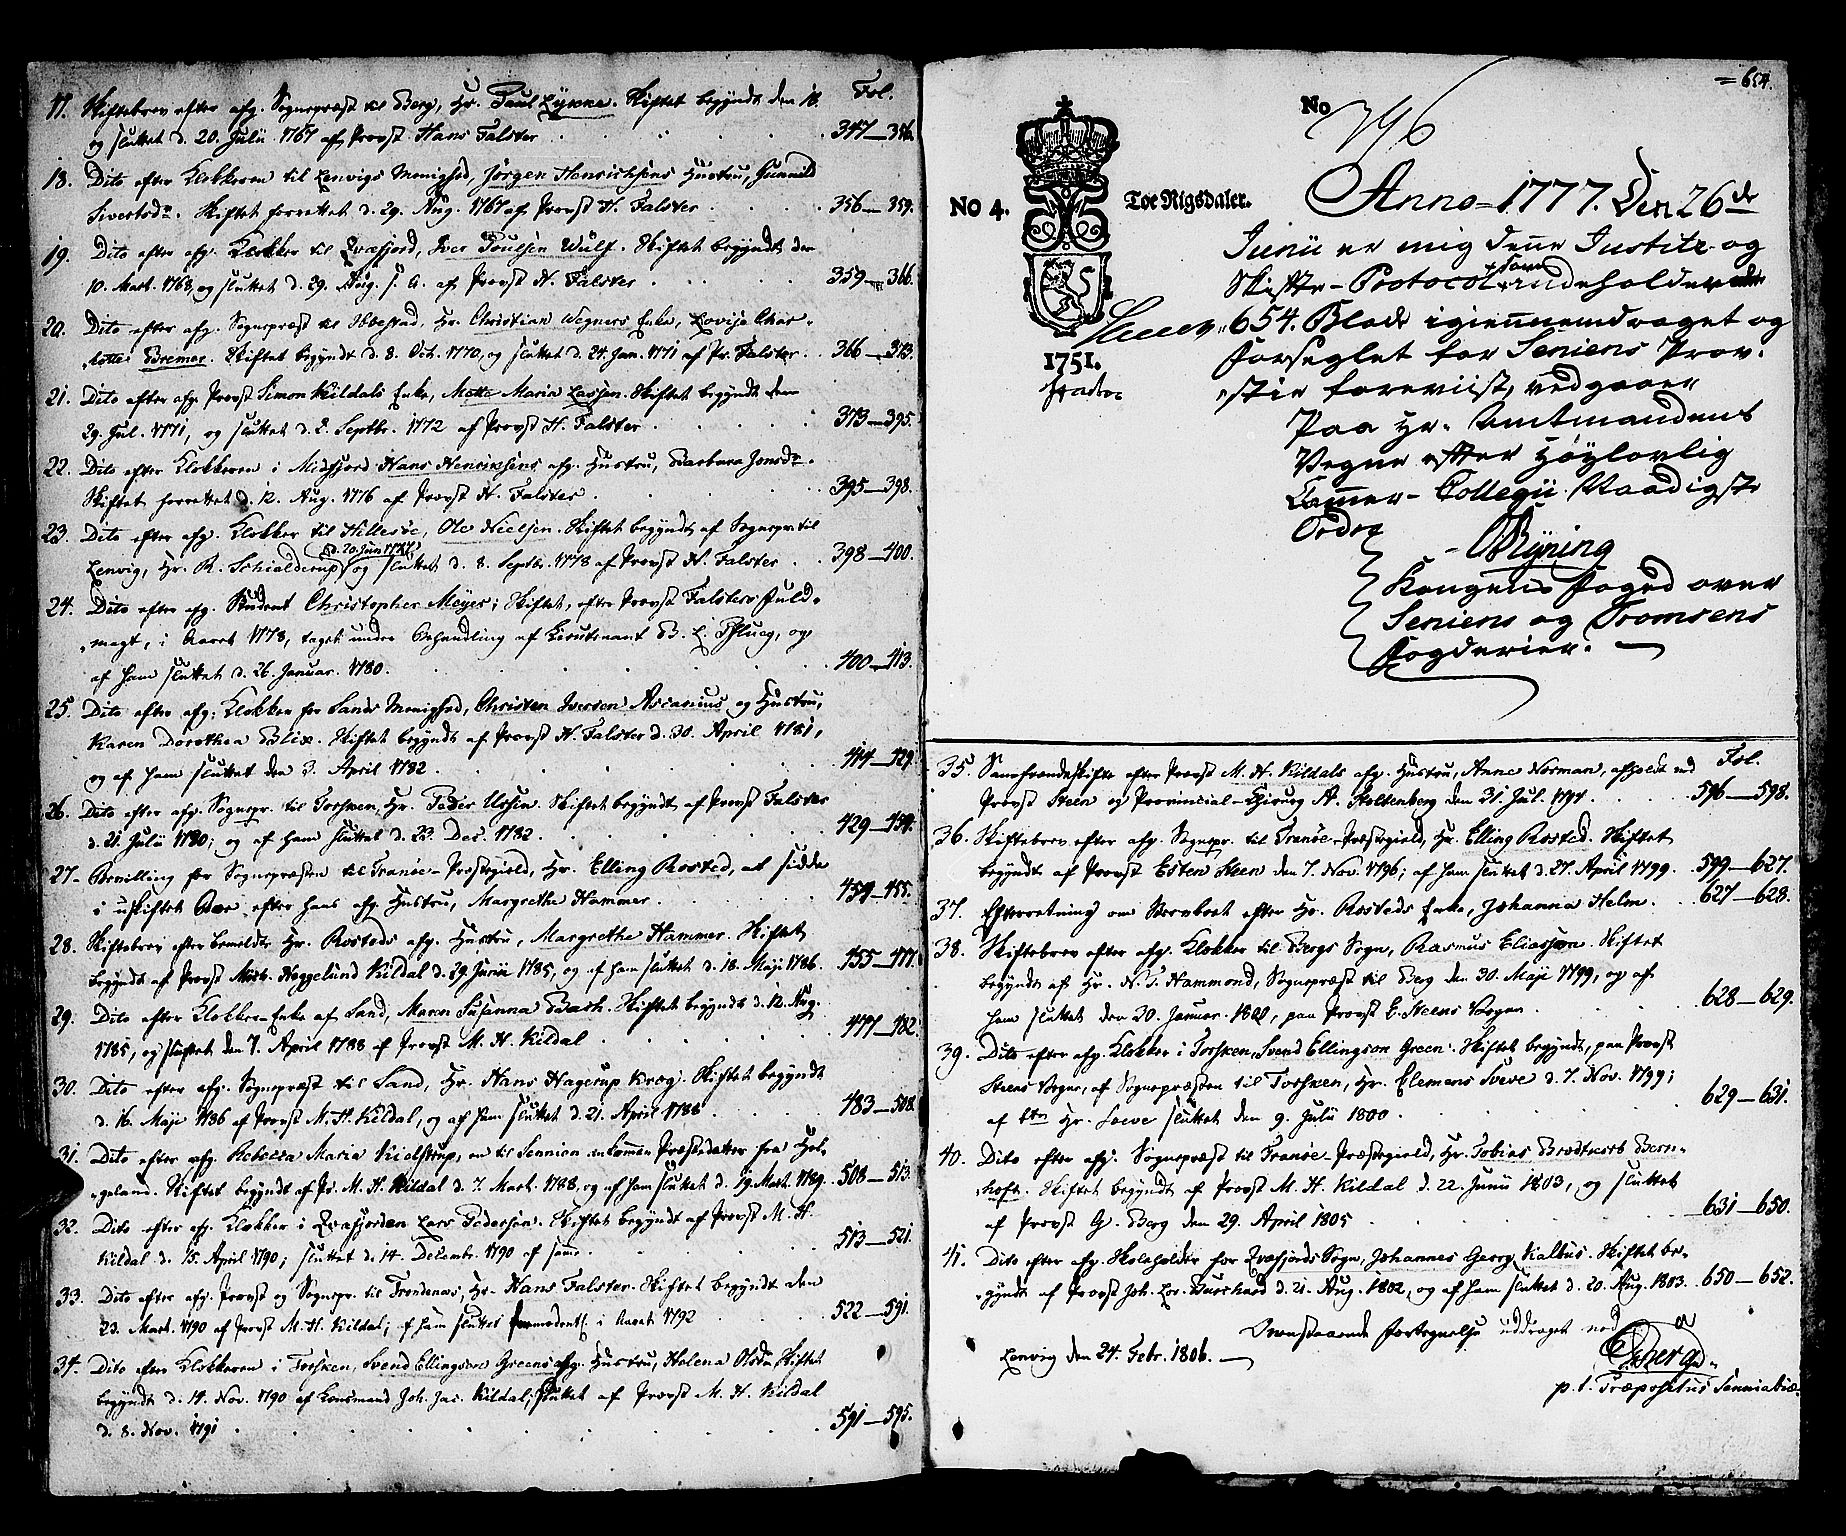 17. Skiftebrev efter afg. Sognepræst til Berg, Hr. Paul Lykke. Skiftet begyndt den 18. Fol.
og sluttet d. 20. Julii 1767 af Provst Hans Falster . . . 347—356.
18. Dito efter Klokkeren til Lenvigs Menighed, Jørgen Henrichsens Hustru, Gunnild
Sivertsdr. Skiftet forrettet d. 29. Aug. 1767 af Provst H. Falster . . . 356—359.
19. Dito efter afg. Klokker til Qvæfjord, Iver Poulsen Wulf. Skiftet begyndt den
10. Mart. 1768, og sluttet d. 29. Aug. s. A. af Provst H. Falster . . . 359—366.
20. Dito efter afg. Sognepræst til Ibbestad, Hr. Christian Wegners Enke, Lovise Char-
lotte Bremer. Skiftet begyndt d. 8. Oct. 1770, og sluttet d. 24. Jan. 1771 af Pr. Falster . . 366—373.
21. Dito efter afg. Provst Simon Kildals Enke, Mette Maria Lassen. Skiftet begyndt den
29. Jul. 1771, og sluttet d. 2. Septbr. 1772 af Provst H. Falster . . . 373—395.
22. Dito efter Klokkeren i Midfjord Hans Henrikssens afg. Hustru, Barbara Jonsdr.
Skiftet forrettet d. 12. Aug. 1776 af Provst H. Falster . . . 395—398.
23. Dito efter afg. Klokker til Hillesøe, Ole Nielsen. Skiftet begyndt af Sognepr. til
Lenvig, Hr. R. Schielderup (d. 20. Jun 1777) og sluttet d. 8. Septbr. 1778 af Provst H. Falster . . 398—400.
24. Dito efter afg. Student Christopher Meyer; Skiftet, efter Provst Falsters Fuld-
magt, i Aaret 1778, taget under Behandling af Lieutenant B. L. Pflueg, og
af ham sluttet d. 26. Januar. 1780. . . . 400—413.
25. Dito efter afg. Klokker for Sands Menighed, Christen Iversen Ascanius og Hustru,
Karen Dorothea Blix. Skiftet begyndt af Provst H. Falster d. 30. April 1781,
og af ham sluttet den 3. April 1782. . . . 414—429.
26. Dito efter afg. Sognepr. til Torsken, Hr. Peder Ursin. Skiftet begyndt af Provst Falster
d. 21. Julii 1780; og af ham sluttet d. 23. Dec. 1782. . . . 429—454.
27. Bevilling for Sognepræsten til Tranøe-Præstegield, Hr. Elling Rosted, at sidde
i uskiftet Boe efter hans afg. Hustru, Margrethe Hammer. . . . 454—455.
28. Skiftebrev efter bemeldte Hr. Rosteds afg. Hustru, Margrethe Hammer. Skiftet
begyndt af Provst Mich. Heggelund Kildal d. 29. Junii 1785, og af ham sluttet d. 18. Maji 1786. 455—477.
29. Dito efter Klokker-Enke af Sand, Maren Susanna Bash. Skiftet begyndt d. 12. Aug.
1785, og sluttet den 7. April 1788 af Provst M. H. Kildal . . . 477—482.
30. Dito efter afg. Sognepræst til Sand, Hr. Hans Hagerup Krog. Skiftet begyndt
d. 16. Maji 1786 af Provst M. H. Kildal, og af ham sluttet d. 21. April 1788 . . . 483—508.
31. Dito efter afg. Rebecca Maria Kielstrup, en til Sennien ankommen Præstedatter fra Hel-
geland. Skiftet begyndt af Pr. M. H. Kildal d. 7. Mart. 1788 og af ham sluttet d. 19. Mart. 1789. 508—513.
32. Dito efter afg. Klokker i Qvæfjorden Lars Pedersen. Skiftet begyndt af Provst M. H.
Kildal d. 15. April 1790; sluttet d. 14. Decembr. 1790 af samme. . . . 513—521.
33. Dito efter afg. Provst og Sognepr. til Trondenæs, Hr. Hans Falster. Skiftet begyndt den
23. Mart. 1790 af Provst M. H. Kildal; af ham sluttet i Aaret 1792 . . . 522—591.
34. Dito efter Klokkeren i Torsken, Svend Ellingsen Greens afg. Hustru, Helena Olsdr. Skiftet
begyndt d. 14. Nov. 1790 af Lensmand Joh. Jac. Kildal, sluttet af Provst M. H. Kildal
d. 8. Nov. 1791 . . . 591—595.
= 654.
No
796
No 4. Toe Rigsdaler.
1751.
Anno 1777. Den 26de
Junii er mig denne Justitz og
Skiftte-Protocol som indeholder
654. Blade igiennemdraget og
forseglet for Seniens Prov-
stie foreviist, vedgaaer
Paa Hr. Amtmandens
Vegne efter Høylovlig
Cammer-Collegii Naadigste
Ordre
Byning
Kongens Foged over
Seniens og Tromsens
Fogderier.
35. Samfrændeskifte efter Provst M. H. Kildals afg. Hustru, Anne Norman, afholdt ved Fol.
Provst Steen og Provincial-Chirurg A. Stoltenberg den 31. Jul. 1794. . . . 596—598.
36. Skiftebrev efter afg. Sognepr. til Tranøe-Præstegield, Hr. Elling Rosted. Skiftet
begyndt af Provst Esten Steen den 7. Nov. 1796; af ham sluttet d. 27. April 1799. . 599—627.
37. Efterretning om Stervboet efter Hr. Rosteds Enke, Johanna Helm. . . 627—628.
38. Skiftebrev efter afg. Klokker til Bergs Sogn, Rasmus Eliassen. Skiftet
begyndt af Hr. N. S. Hammond, Sognepræst til Berg den 30. Maji 1799, og af
ham sluttet den 20. Januar. 1801, paa Provst E. Steens Vegne . . . 628—629.
39. Dito efter afg. Klokker i Torsken, Svend Ellingsøn Green. Skiftet begyndt, paa Provst
Steens Vegne, af Sognepræsten til Torsken, Hr. Clemens Sveve d. 7. Nov. 1799;
af bte Hr. Soeve sluttet den 9. Julii 1800. . . . 629—631.
40. Dito efter afg. Sognepræst til Tranøe-Præstegield, Hr. Tobias Brodtkorb Bern-
hoft. Skiftet begyndt af Provst M. H. Kildal d. 22. Junii 1803, og sluttet
af Provst G. Berg den 29. April 1805 . . . 631—650.
41. Dito efter afg. Skoleholder for Qvæfjords Sogn, Johannes Georg Kalkus. Skiftet be-
gyndt af Provst Joh. Lor. Burchard d. 21. Aug. 1802, og af ham sluttet d. 20. Aug. 1803. 650—652.
Ovenstaaende Fortegnelse uddraget ved
Lenvig den 24. Febr. 1806. — GBerg
p. t. Præpositus Senniabiæ.